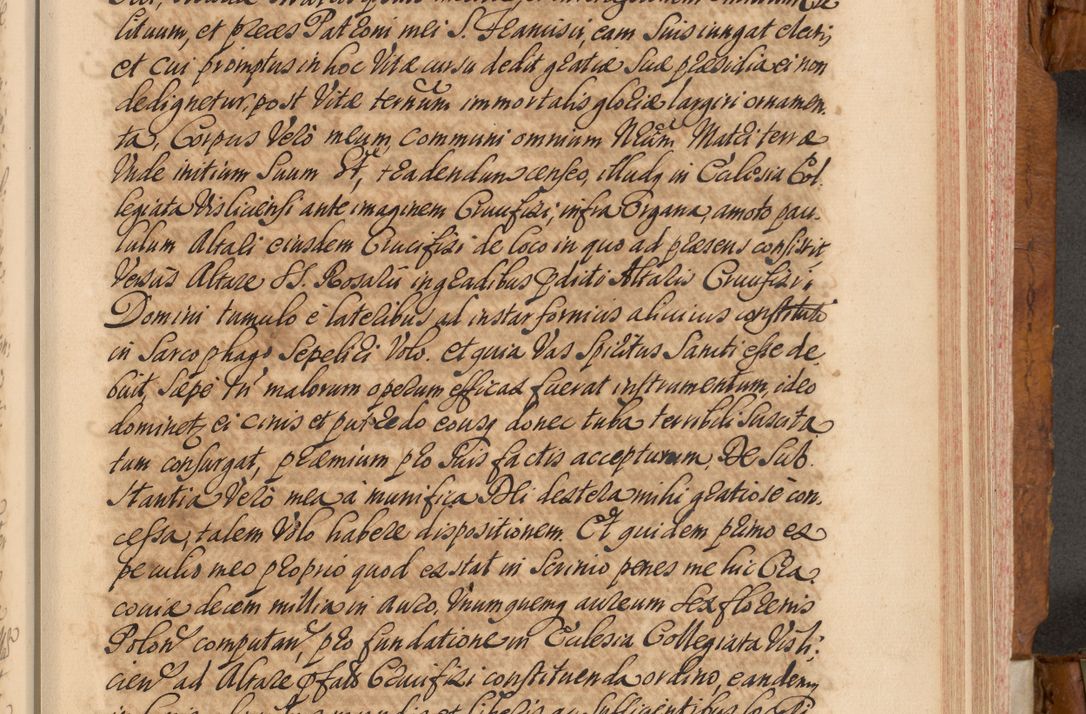 lituum, et preces Patroni mei S. Francisci, eam suis iungat electis,
et cui promptus in hoc Vitæ cursu dedit gratiæ suæ præsidia ei non
dedignetur, post Vitæ ternum immortalis gloriæ largiri ornamen-
ta, Corpus Verò meum, communi omnium Matri terræ
Unde initium suum tradendum censeo, illudq in Ecclesia Col-
legiata Visliciensi ante imaginem Crucifixi, infra Organa, amoto pau-
lulum Altari eiusdem Crucifixi de loco in quo ad præsens consistit,
Versus Altare SS. Rosarii in gradibus pdicti Altaris Crucifixi
Domini tumulo è lateribus ad instar fornicis alicuius constituti
in Sarcophago Sepeliri Volo. et quia Vas Spiritus Sancti esse de-
buit, sæpe malorum operum efficax fuerat instrumentum, ideo
dominet ei cinis et putredo eousq donec tuba terribili suscita-
tum consurgat, præmium pro suis factis accepturum. De Sub-
stantia Verò mea à munifica Dei dextera mihi gratiosè con-
cessa, talem Volo habere dispositionem. Et quidem primo ex
peculio meo proprio quod exstat in Scrinio penes me hic Cra-
coviæ decem millia in auro, Unumquemq aureum sex florenis
Polon computan, pro fundatione in Ecclesia Collegiata Visli-
cien ad Altare pfato Crucifixi constituenda ordino, eandem